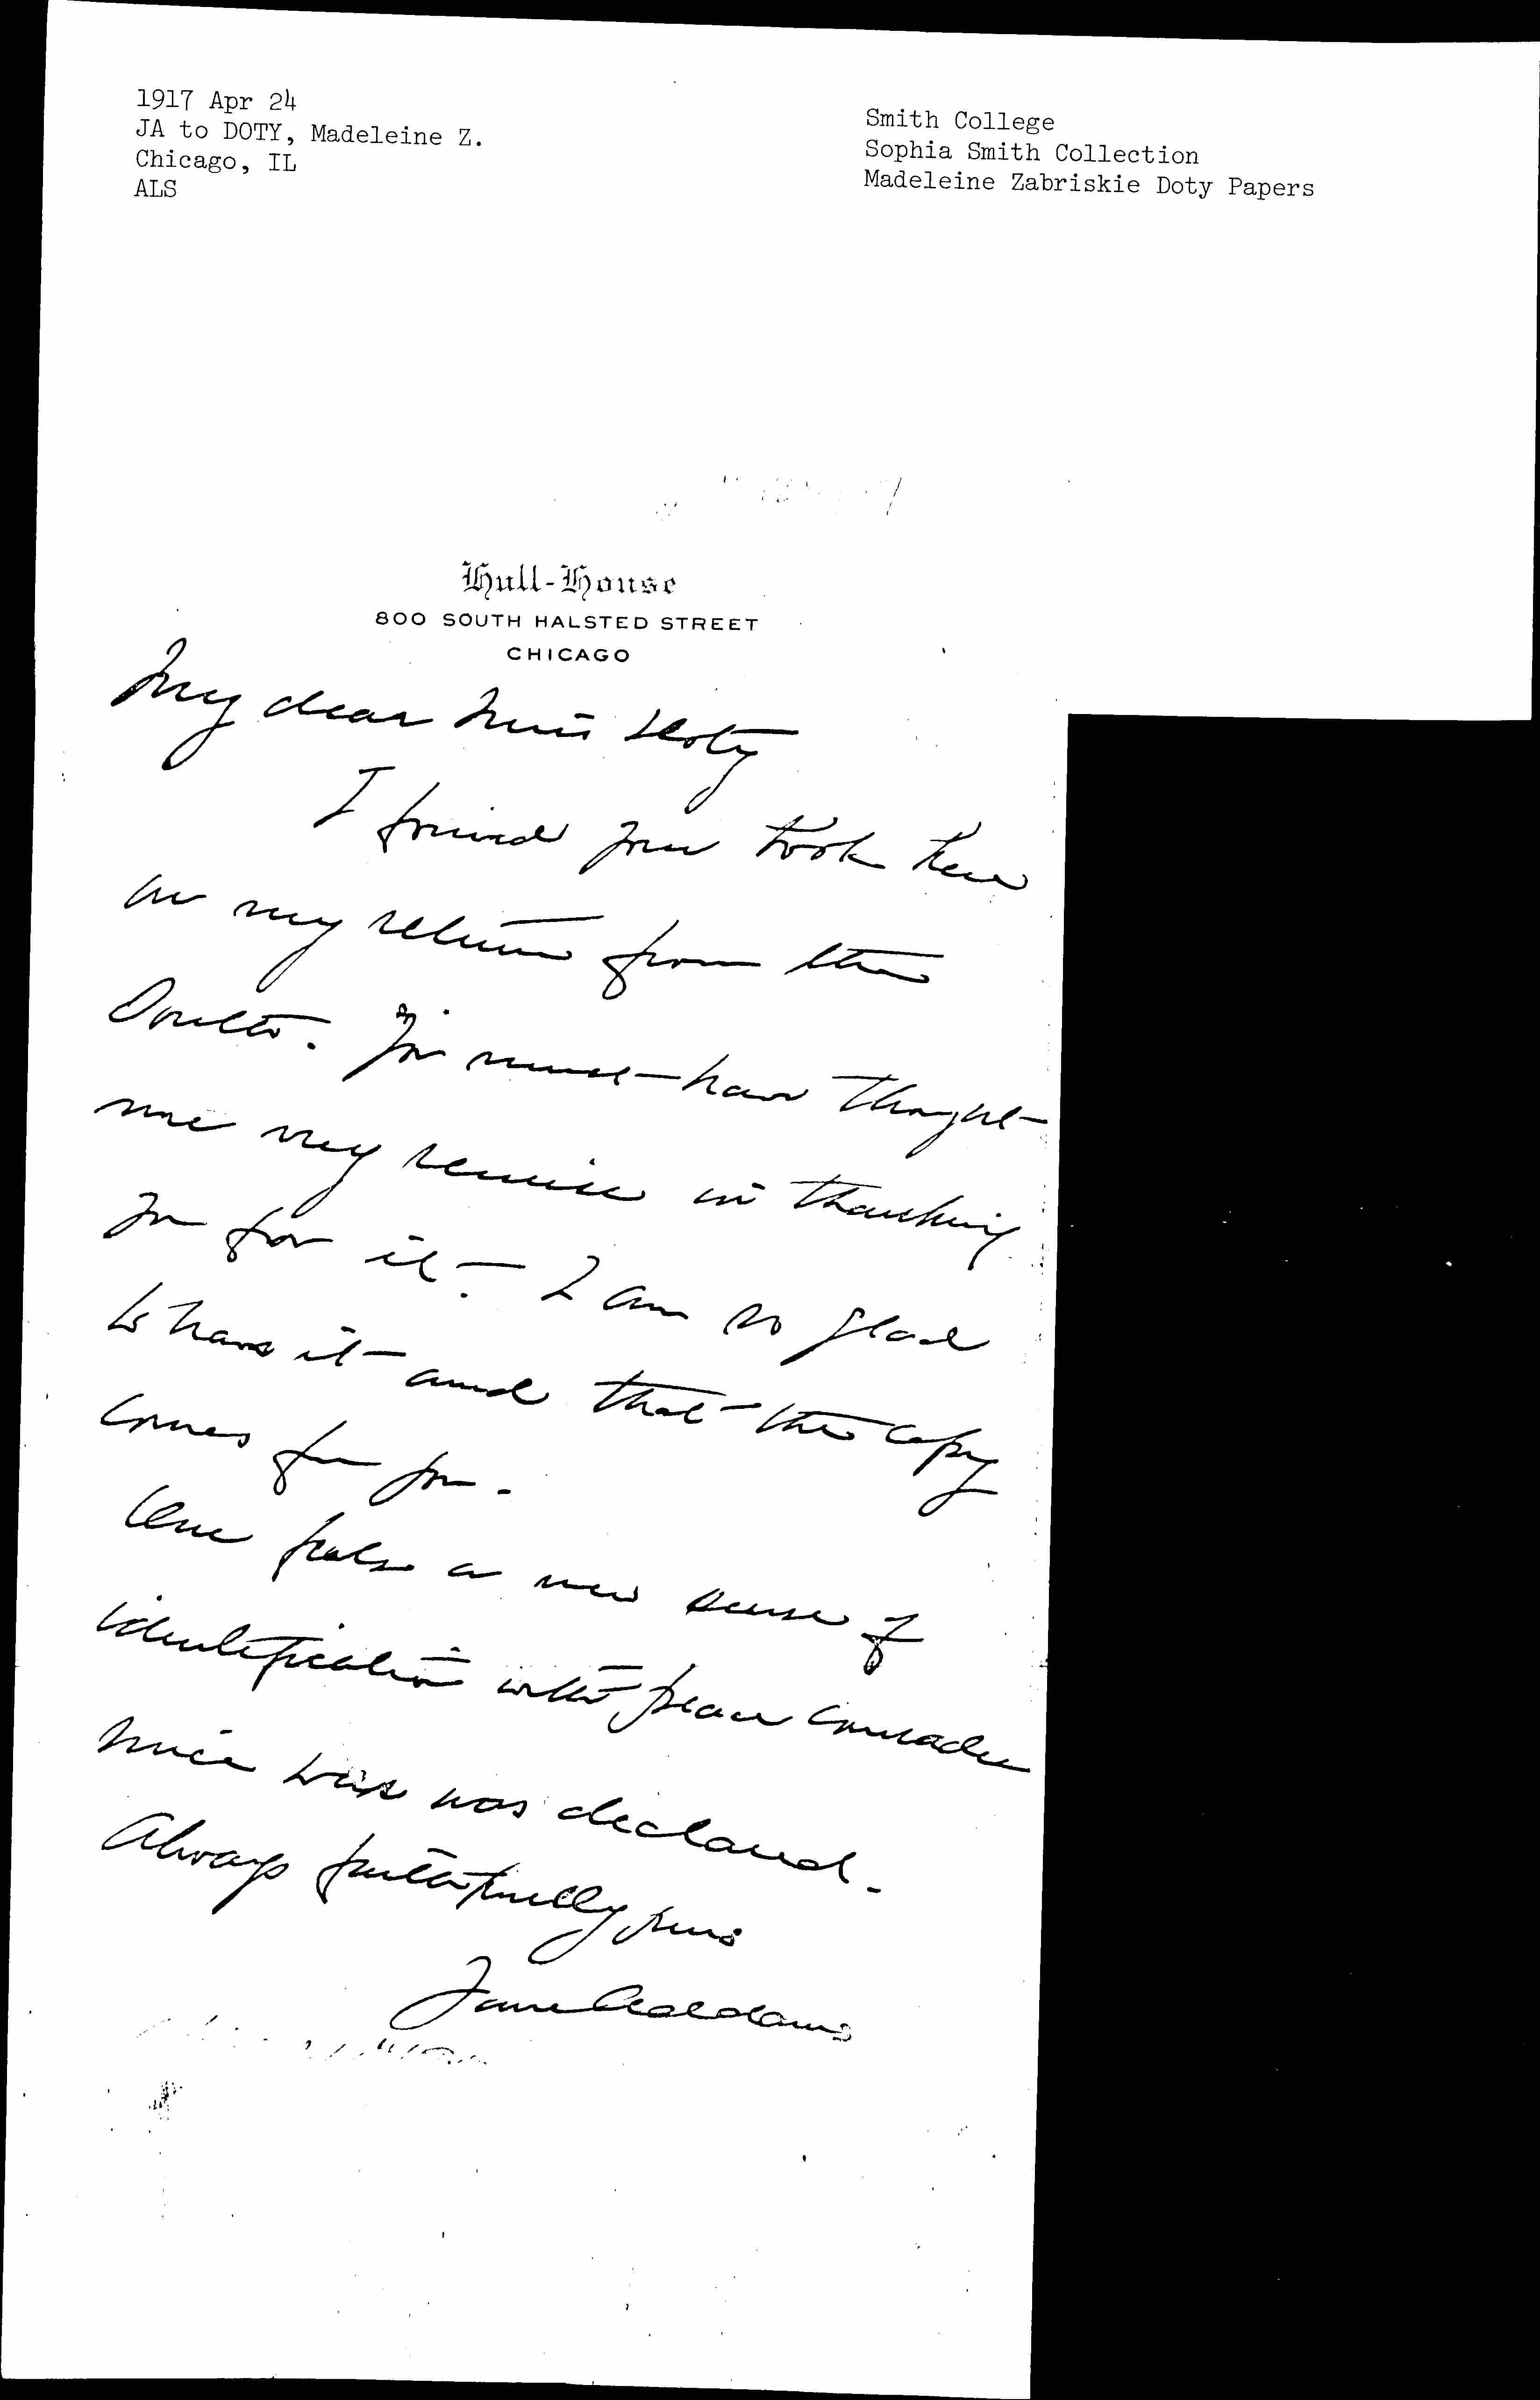 1917 Apr 24
JA to DOTY, Madeleine Z.
Chicago, IL
ALS
Smith College
Sophia Smith Collection
Madeleine Zabriskie Doty Papers
Hull-House
800 SOUTH HALSTED STREET
CHICAGO
My dear Miss Doty
I found your book here
on my return from the
South. You must have thought
me very remiss in thanking
you for it. I am so glad
to have it and that the copy
comes from you.
One feels a new sense of
identification with peace comrades
since war was declared.
Always faithfully yours
Jane Addams